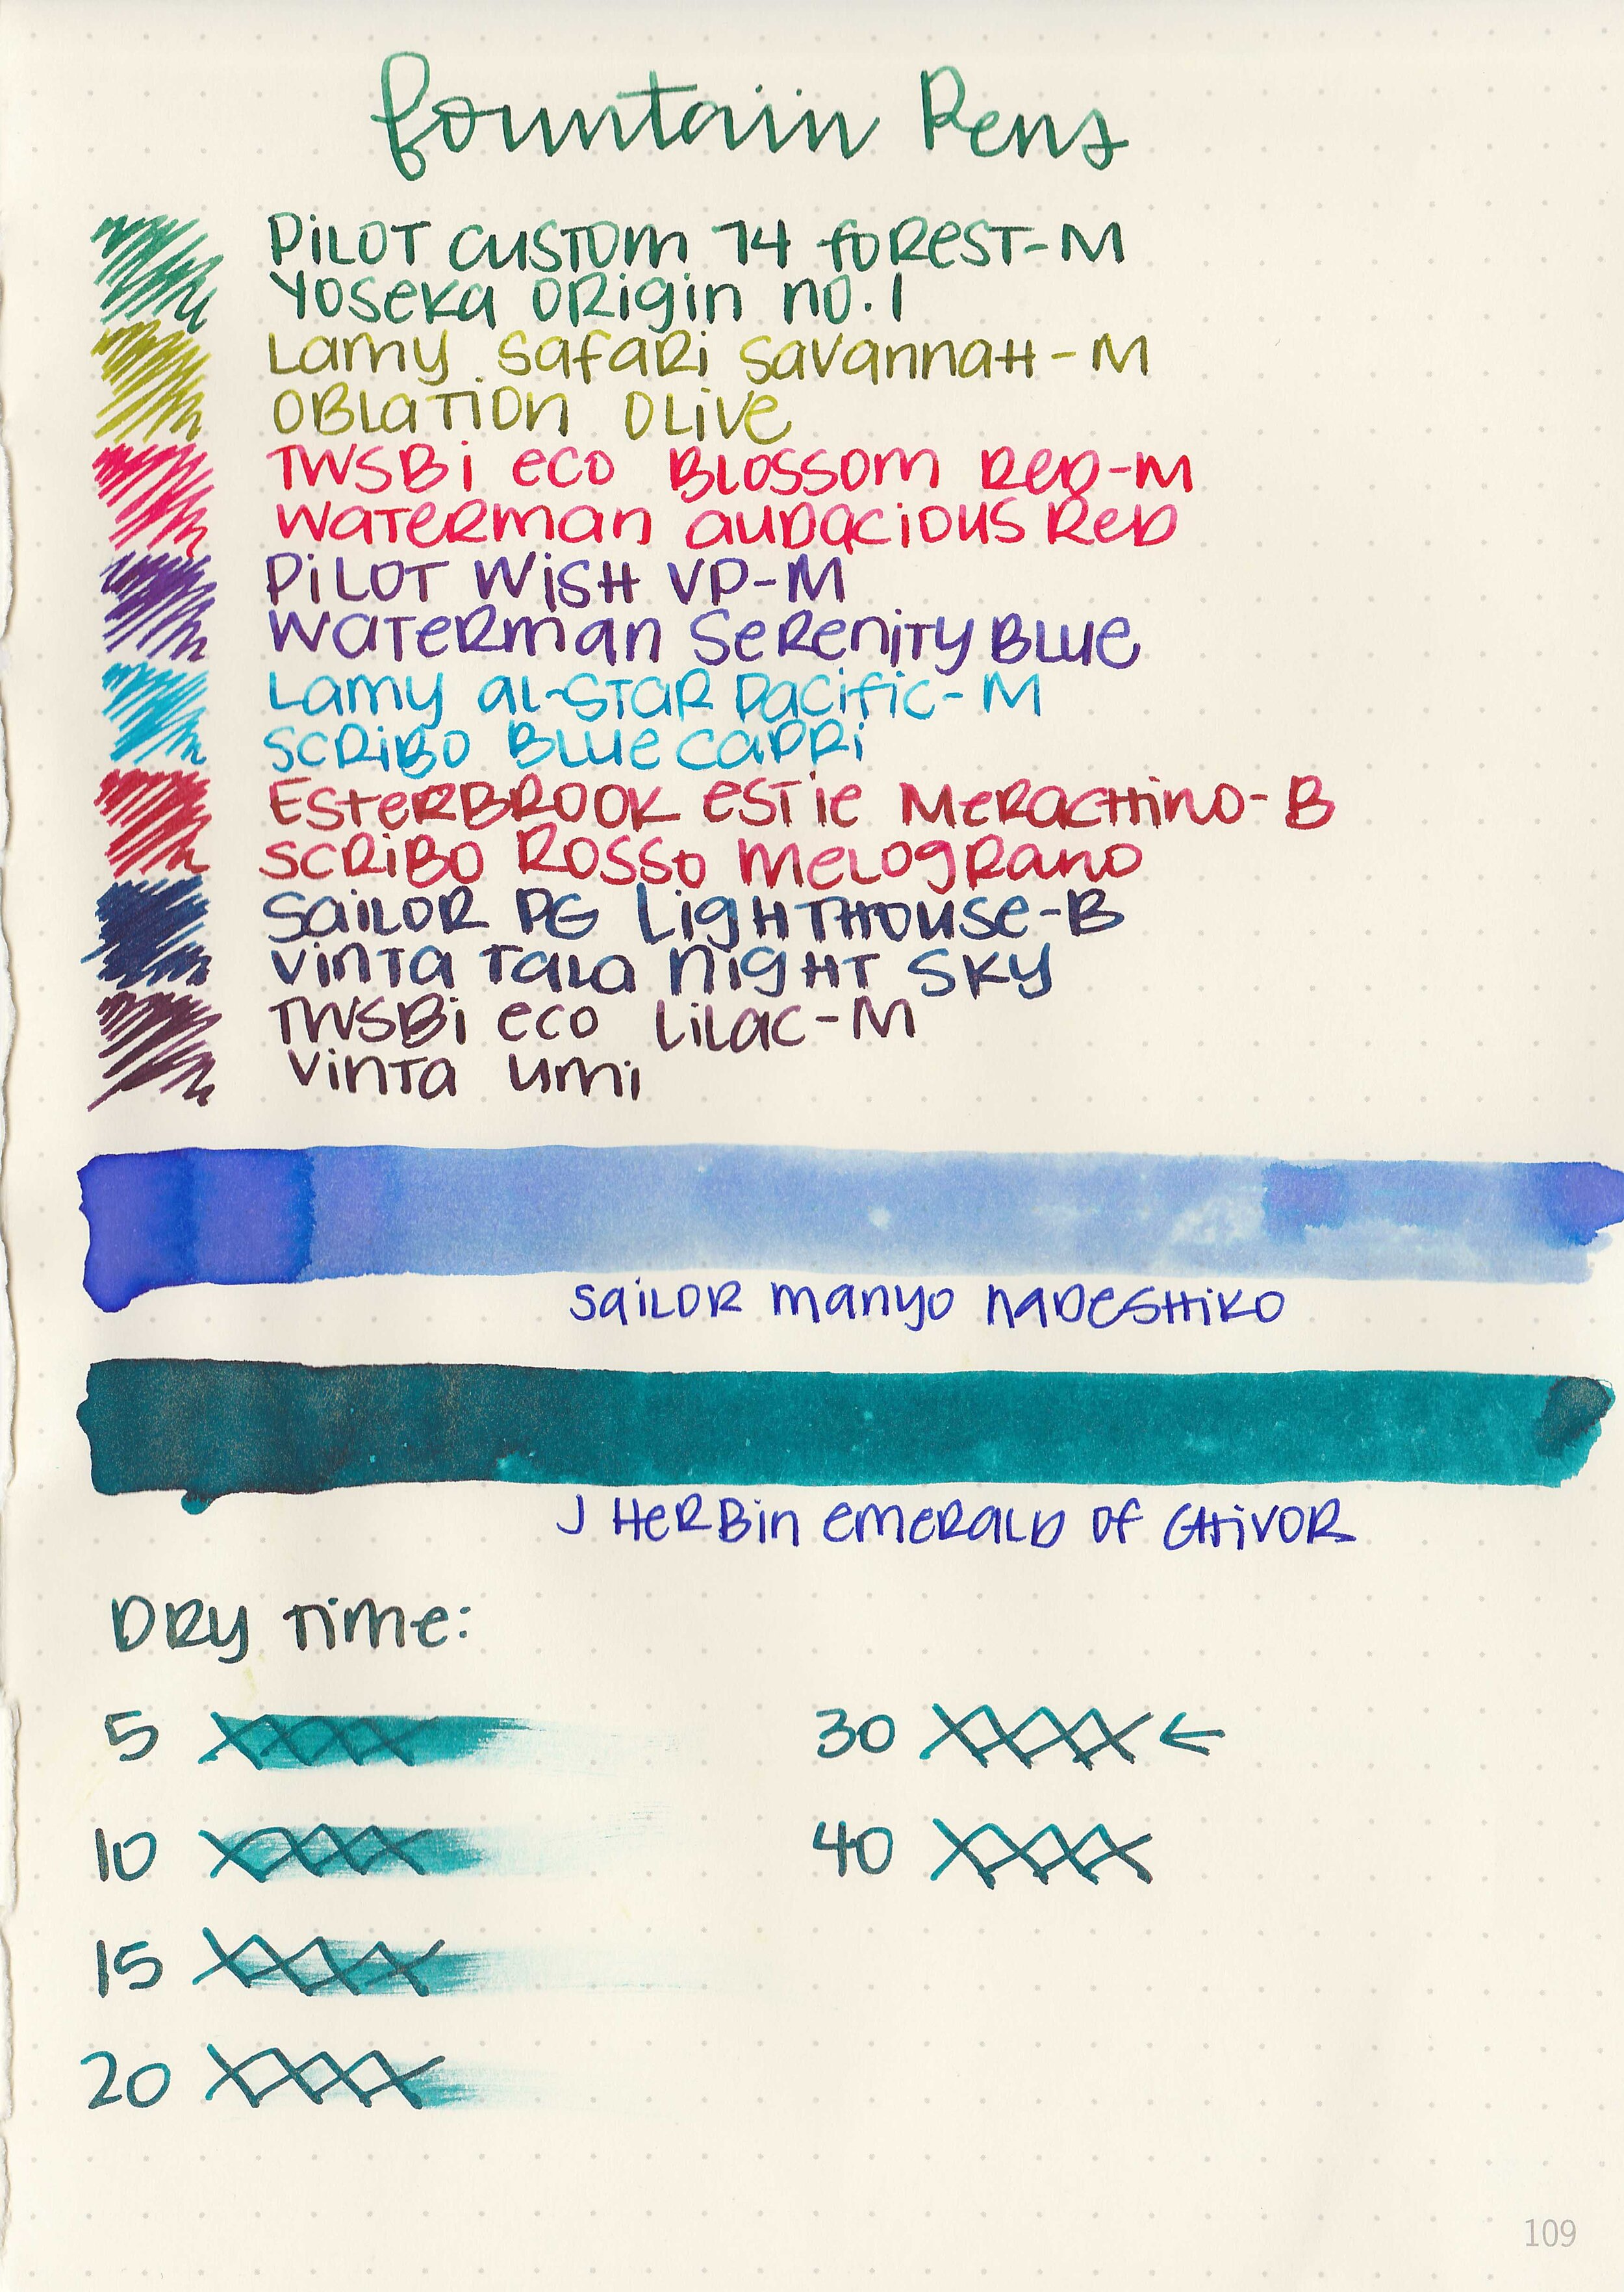 fountain Pens
PiLOT custom 74 forest-M
Yoseka origin no.1
Lamy Safari Savannah-M
Oblation Olive
TWSBi eco Blossom Red-M
Waterman audacious Red
PiLOT Wish VP-M
Waterman Serenity Blue
Lamy al-star pacific-M
Scribo Blue capri
Esterbrook estie Merachino-B
Scribo Rosso Melograno
Sailor PG Lighthouse-B
Vinta Tala night sky
TWSBi eco Lilac-M
Vinta umi
Sailor manyo nadeshiko
J Herbin emerald of Chivor
Dry time:
5 XXXX 30 XXXX ←
10 XXXX 40 XXXX
15 XXXX
20 XXXX
109